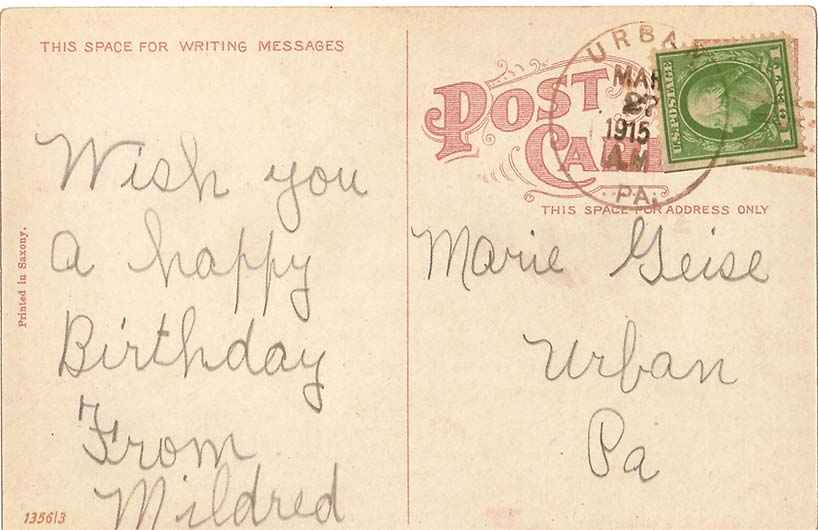 THIS SPACE FOR WRITING MESSAGES
Wish you
a happy
Birthday
From
Mildred
Printed in Saxony.
1356|3
POST
CARD
URBAN
MAR
27
1915
A.M.
PA.
U.S. POSTAGE
1 CENT 1
THIS SPACE FOR ADDRESS ONLY
Marie Geise
Urban
Pa